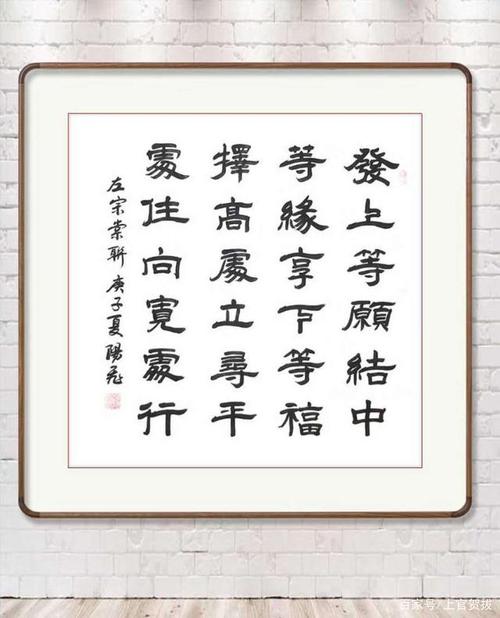 發上等願結中
等緣享下等福
擇高處立尋平
處住向寬處行
左宗棠聯庚子夏陽
百家号/上官贺拔